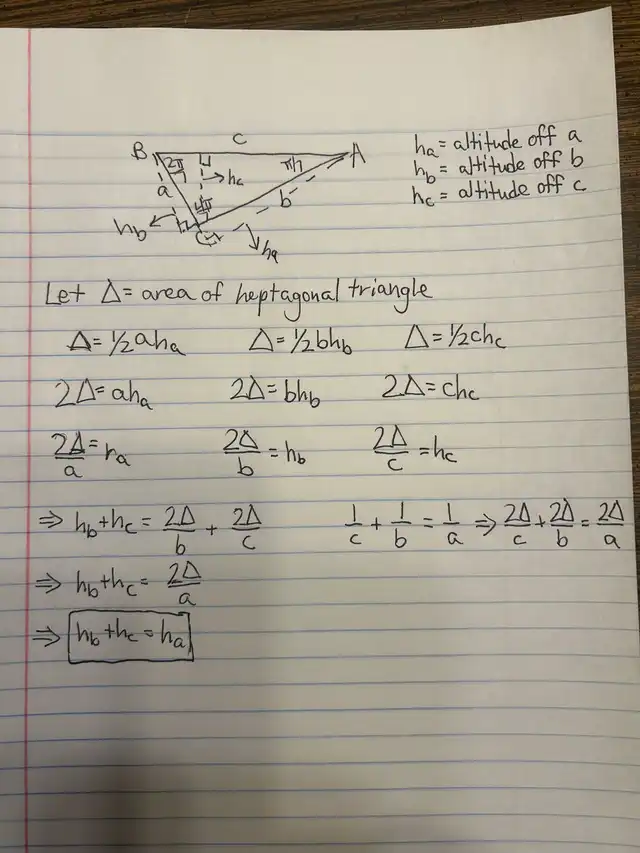 c
B 2π/7 π/7 A
a hc b
4π/7
hb C ha
ha = altitude off a
hb = altitude off b
hc = altitude off c
Let Δ = area of heptagonal triangle
Δ = 1/2 aha Δ = 1/2 bhb Δ = 1/2 chc
2Δ = aha 2Δ = bhb 2Δ = chc
2Δ/a = ha 2Δ/b = hb 2Δ/c = hc
⇒ hb + hc = 2Δ/b + 2Δ/c 1/c + 1/b = 1/a ⇒ 2Δ/c + 2Δ/b = 2Δ/a
⇒ hb + hc = 2Δ/a
⇒ hb + hc = ha